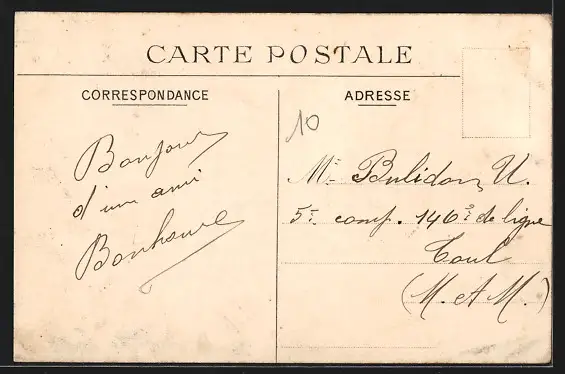 CARTE POSTALE
CORRESPONDANCE
ADRESSE
10
Bonjour
d'un ami
Bonhoure
Mr Bulidon, U.
5e comp. 146e de ligne
Toul
(M. et M.)